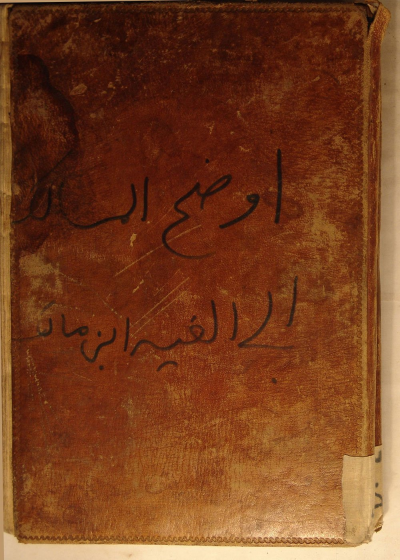 اوضح المسالك
الى الفيه ابن مالك